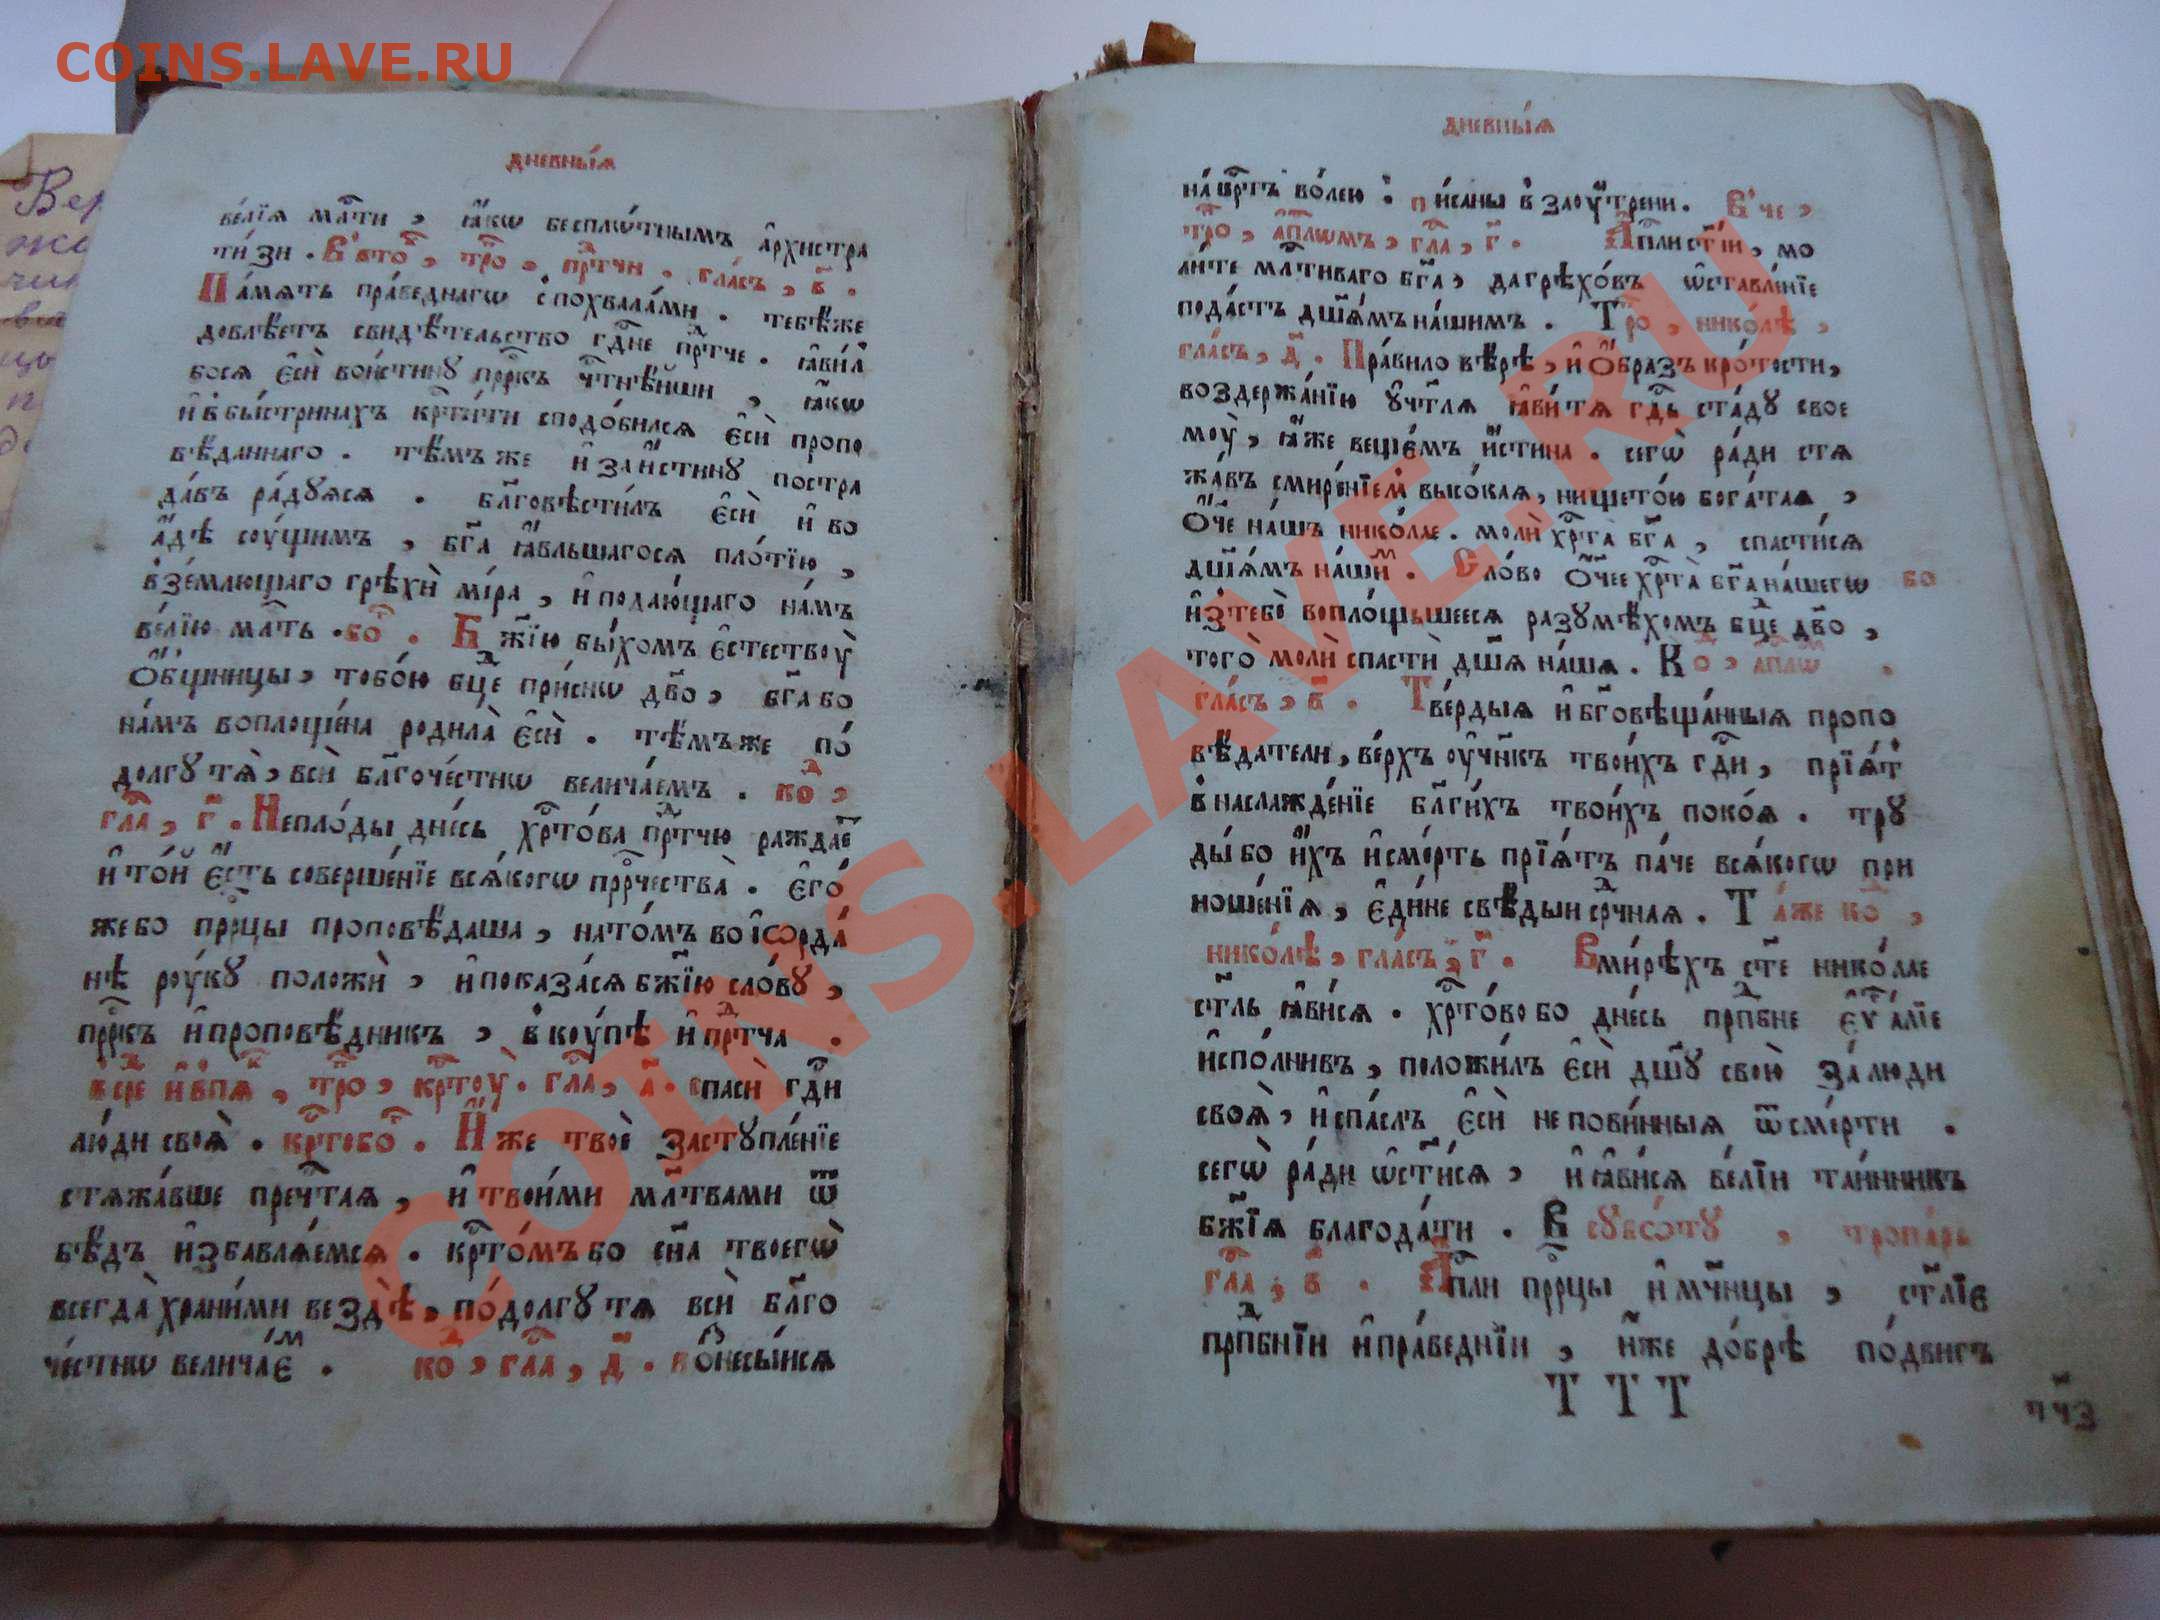 COINS.LAVE.RU
дневны́ѧ
ве́лїѧ мл҃ти , ꙗ҆́кѡ бесплѡ́тнымъ а҆рхистра
ти́зи . В' вто̑ , тро̑ , прⷣтчи . гла́съ , в҃ .
Па́мѧть пра́веднагѡ с̾похвала́ми . тебѣ́же
довлѣ́етъ свидѣ́тельство гдⷭ҇не прⷣтче . ꙗ҆ви́л
босѧ є҆сѝ вои́стинꙋ прⷪ҇ркъ чⷭ҇тнѣ́йши , ꙗ҆́кѡ
и҆ в̾бы́стринахъ крⷭ҇ти́ти сподо́билсѧ є҆сѝ пропо
вѣ́даннаго . тѣ́мъже и҆ заи́стинꙋ постра
да́въ ра́дꙋѧсѧ . бл҃говѣсти́лъ є҆сѝ и҆ во
а҆́дѣ соу́щимъ , бг҃а ꙗ҆вльшагосѧ пло́тїю ,
в̾зе́млющаго грѣхѝ мі́ра , и҆ подаю́щаго на́мъ
ве́лїю мл҃ть . бо̑ . Бж҃їю бы́хомъ є҆стествоу̀
О҆́бщницы , тобо́ю бцⷣе при́снѡ дв҃о , бг҃а бо
на́мъ воплоще́на родила̀ є҆сѝ . тѣ́мъже по́
долгꙋ тѧ̀ , всѝ бл҃гоче́стнѡ велича́емъ . коⷣ ,
гла̑ , г҃ . Непло́ды дне́сь хрⷭ҇то́ва прⷣтчю раждае̑
и҆ то́й є҆́сть соверше́нїе всѧ́когѡ прⷪ҇рчества̀ . є҆го́
жебо прⷪ҇рцы проповѣ́даша , нато́мъ во і҆ѡрда́
нѣ роу́кꙋ положѝ , и҆ показа́сѧ бж҃їю сло́вꙋ ,
прⷪ҇ркъ и҆ проповѣ́дникъ , в̾коу́пѣ и҆ прⷣтча .
в̾ сре и҆ в̾пѧ , тро̑ , крⷭ҇тоу̀ . гла̑ , а҃ . спасѝ гдⷭ҇и
лю́ди своѧ̀ . крⷭ҇тобо̑ . И҆́же твоѐ застꙋпле́нїе
стѧжа́вше пречⷭ҇таѧ , и҆ твои́ми мл҃твами ѿ
бѣ́дъ и҆збавлѧ́емсѧ . крⷭ҇то́мъбо сн҃а твоегѡ̀
всегда̀ храни́ми вездѣ̀ , по́долгꙋ тѧ всѝ бл҃го
че́стнѡ велича́еⷨ . коⷣ , гла̑ , д҃ . вОзнесы́исѧ
дневны́ѧ
на́ крⷭ҇тъ во́лею . писаны в̾ заоу́трени . В' че ,
тро̑ , а҆пⷭ҇лѡмъ , гла̑ , г҃ . А҆пⷭ҇ли ст҃і́и , мо
ли́те мл҃тиваго бг҃а , да грѣхо́въ ѡ҆ставле́нїе
пода́стъ дш҃а́мъ на́шимъ . Тро̑ , нико́лѣ ,
гла́съ , д҃ . Пра́вило вѣ́рѣ , и҆ О҆́бразъ кро́тости ,
воздержа́нїю ᲂу҆чт҃лѧ ꙗ҆ви́тѧ гдⷭ҇ь ста́дꙋ свое
моу̀ , ꙗ҆́же веще́мъ и҆́стина . сегѡ̀ ра́ди стѧ
жа́въ смире́нїем̾ высо́каѧ , нището́ю бога́таѧ ,
О҆́ч҃е на́шъ нико́лае . молѝ хрⷭ҇та̀ бг҃а , спасти́сѧ
дш҃а́мъ на́шиⷨ . Сло́во О҆́ч҃ее хрⷭ҇та̀ бг҃а на́шегѡ бо
и҆з̾тебѐ вопло́щьшеесѧ разꙋмѣ́хомъ бцⷣе дв҃о ,
того̀ молѝ спастѝ дш҃ѧ на́шѧ . Коⷣ , а҆пⷭ҇лѡⷨ .
гла́съ , в҃ . Тве́рдыѧ и҆ бг҃овѣща́нныѧ пропо
вѣ́датели , ве́рхъ ᲂу҆чн҃къ твои́хъ гдⷭ҇и , прїѧ́т̾
в̾ наслажде́нїе бл҃ги́хъ твои́хъ поко́ѧ . трꙋ
ды́ бо и҆́хъ и҆ сме́рть прїѧ́тъ па́че всѧ́когѡ при
ноше́нїѧ , є҆ди́не свѣ́дыи срⷣчнаѧ . Та́же коⷣ ,
нико́лѣ , гла́съ , г҃ . В ми́рѣхъ ст҃е нико́лае
ст҃ль ꙗ҆ви́сѧ . хрⷭ҇то́во бо дне́сь прпⷣбне є҆ѵⷢ҇а́лїе
и҆спо́лнивъ , положи́лъ є҆сѝ дш҃ꙋ свою̀ за́ люди
своѧ̀ , и҆ спа́слъ є҆сѝ непови́нныѧ ѿ сме́рти .
сегѡ̀ ра́ди ѡ҆ст҃и́сѧ , и҆ ꙗ҆ви́сѧ ве́лїи таи́нникъ
бж҃їѧ благода́ти . В сꙋбѡ́тꙋ , тропа́рь
гла̑ , в҃ . А҆пⷭ҇ли прⷪ҇рцы и҆ мч҃нцы , ст҃лїе
прпⷣбнїи и҆ пра́веднїи , и҆́же до́брѣ по́двигъ
Т Т Т
рч҃з